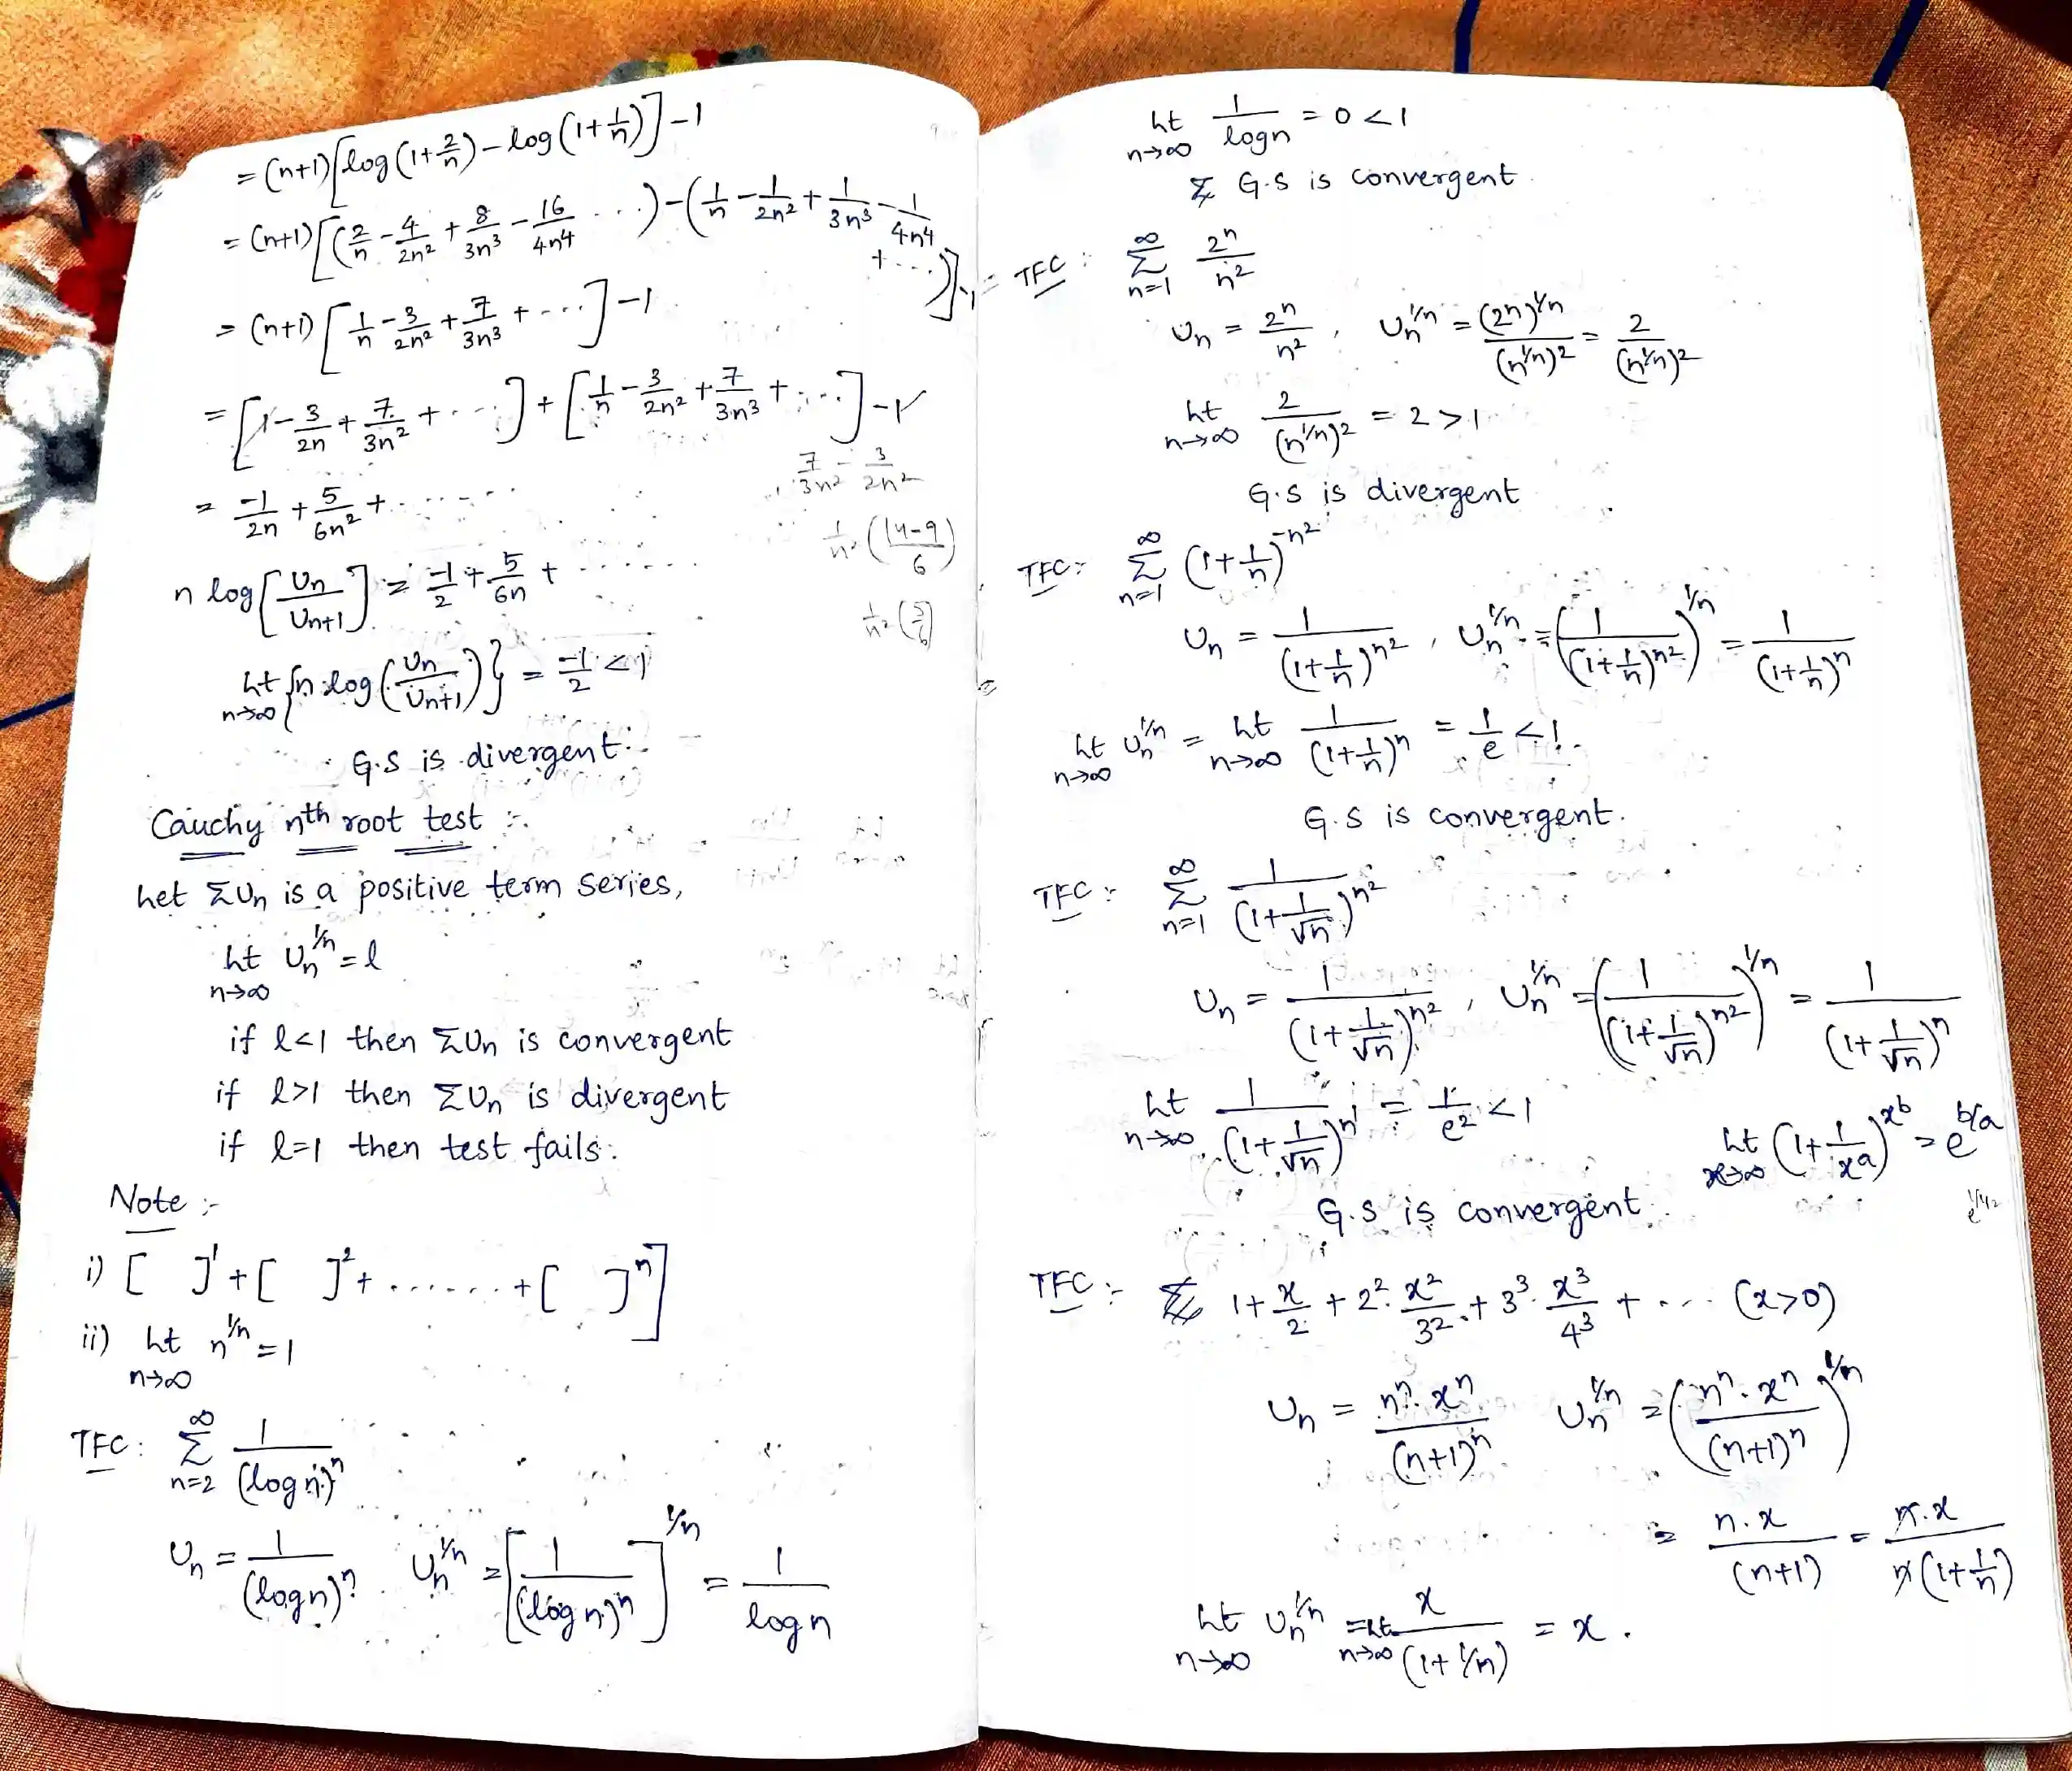 = (n+1)[log(1+2/n) - log(1+1/n)] - 1
= (n+1)[(2/n - 4/2n² + 8/3n³ - 16/4n⁴ ...) - (1/n - 1/2n² + 1/3n³ - 1/4n⁴ + ....)] - 1
= (n+1)[1/n - 3/2n² + 7/3n³ + ....] - 1
= [1 - 3/2n + 7/3n² + ....] + [1/n - 3/2n² + 7/3n³ + ....] - 1
7/3n² - 3/2n²
= -1/2n + 5/6n² + .......
1/n² (14-9/6)
n log[Un/Un+1] = -1/2 + 5/6n + .......
1/n² (5/6)
Lt n→∞ {n log(Un/Un+1)} = -1/2 < 1
G.S is divergent.
Cauchy nth root test :-
Let ΣUn is a positive term series,
Lt n→∞ Un^1/n = l
if l<1 then ΣUn is convergent
if l>1 then ΣUn is divergent
if l=1 then test fails.
Note :-
i) [ ]¹ + [ ]² + ....... + [ ]ⁿ]
ii) Lt n→∞ n^1/n = 1
TFC : ∞ Σ n=2 1/(log n)ⁿ
Un = 1/(log n)ⁿ. Un^1/n = [1/(log n)ⁿ]^1/n = 1/log n
Lt n→∞ 1/log n = 0 < 1
G.S is convergent.
TFC : ∞ Σ n=1 2ⁿ/n²
Un = 2ⁿ/n² , Un^1/n = (2ⁿ)^1/n/(n^1/n)² = 2/(n^1/n)²
Lt n→∞ 2/(n^1/n)² = 2 > 1
G.S is divergent
TFC : ∞ Σ n=1 (1+1/n)^-n²
Un = 1/(1+1/n)^n² , Un^1/n = (1/(1+1/n)^n²)^1/n = 1/(1+1/n)ⁿ
Lt n→∞ Un^1/n = Lt n→∞ 1/(1+1/n)ⁿ = 1/e < 1.
G.S is convergent.
TFC :- ∞ Σ n=1 1/(1+1/√n)^n²
Un = 1/(1+1/√n)^n² , Un^1/n = (1/(1+1/√n)^n²)^1/n = 1/(1+1/√n)ⁿ
Lt n→∞ 1/(1+1/√n)ⁿ = 1/e² < 1
Lt x→∞ (1+1/x^a)^x^b = e^b/a
G.S is convergent.
TFC :- 1 + x/2 + 2².x²/3² + 3³.x³/4³ + .... (x>0)
Un = nⁿ.xⁿ/(n+1)ⁿ Un^1/n = (nⁿ.xⁿ/(n+1)ⁿ)^1/n
= n.x/(n+1) = n.x/n(1+1/n)
Lt n→∞ Un^1/n = Lt n→∞ x/(1+1/n) = x.